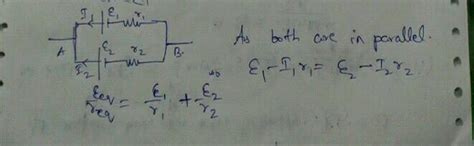 I₁ ε₁ r₁
A ε₂ r₂ B.
I₂
As both are in parallel.
ε₁ - I₁ r₁ = ε₂ - I₂ r₂
εeq/req = ε₁/r₁ + ε₂/r₂